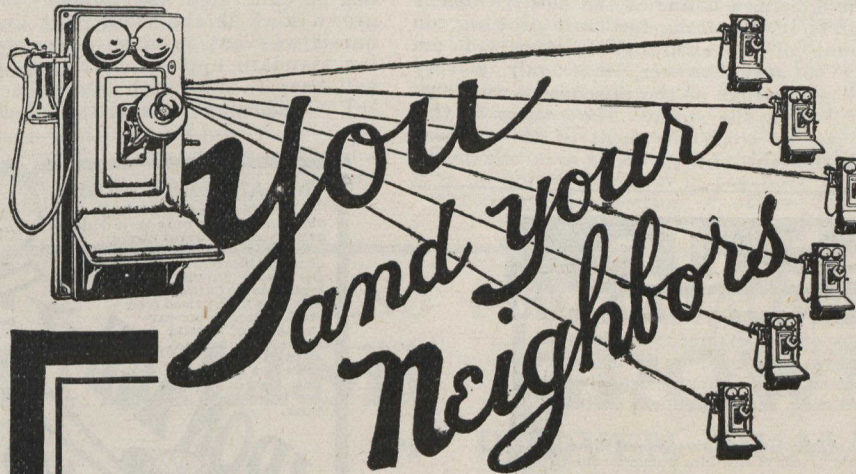 You
and your
Neighbors